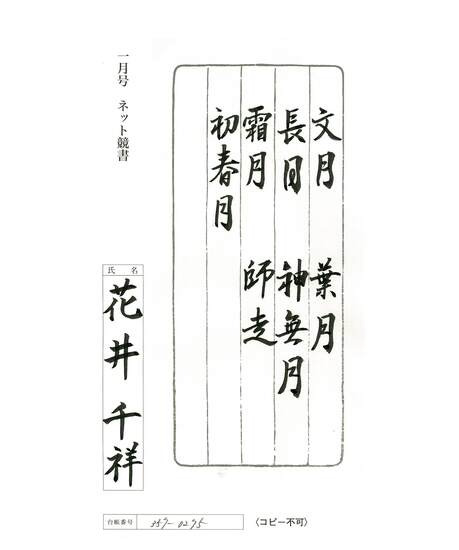 文月 葉月
長月 神無月
霜月 師走
初春月
一月号 ネット競書
氏名
花井千祥
台帳番号 357-0275
〈コピー不可〉